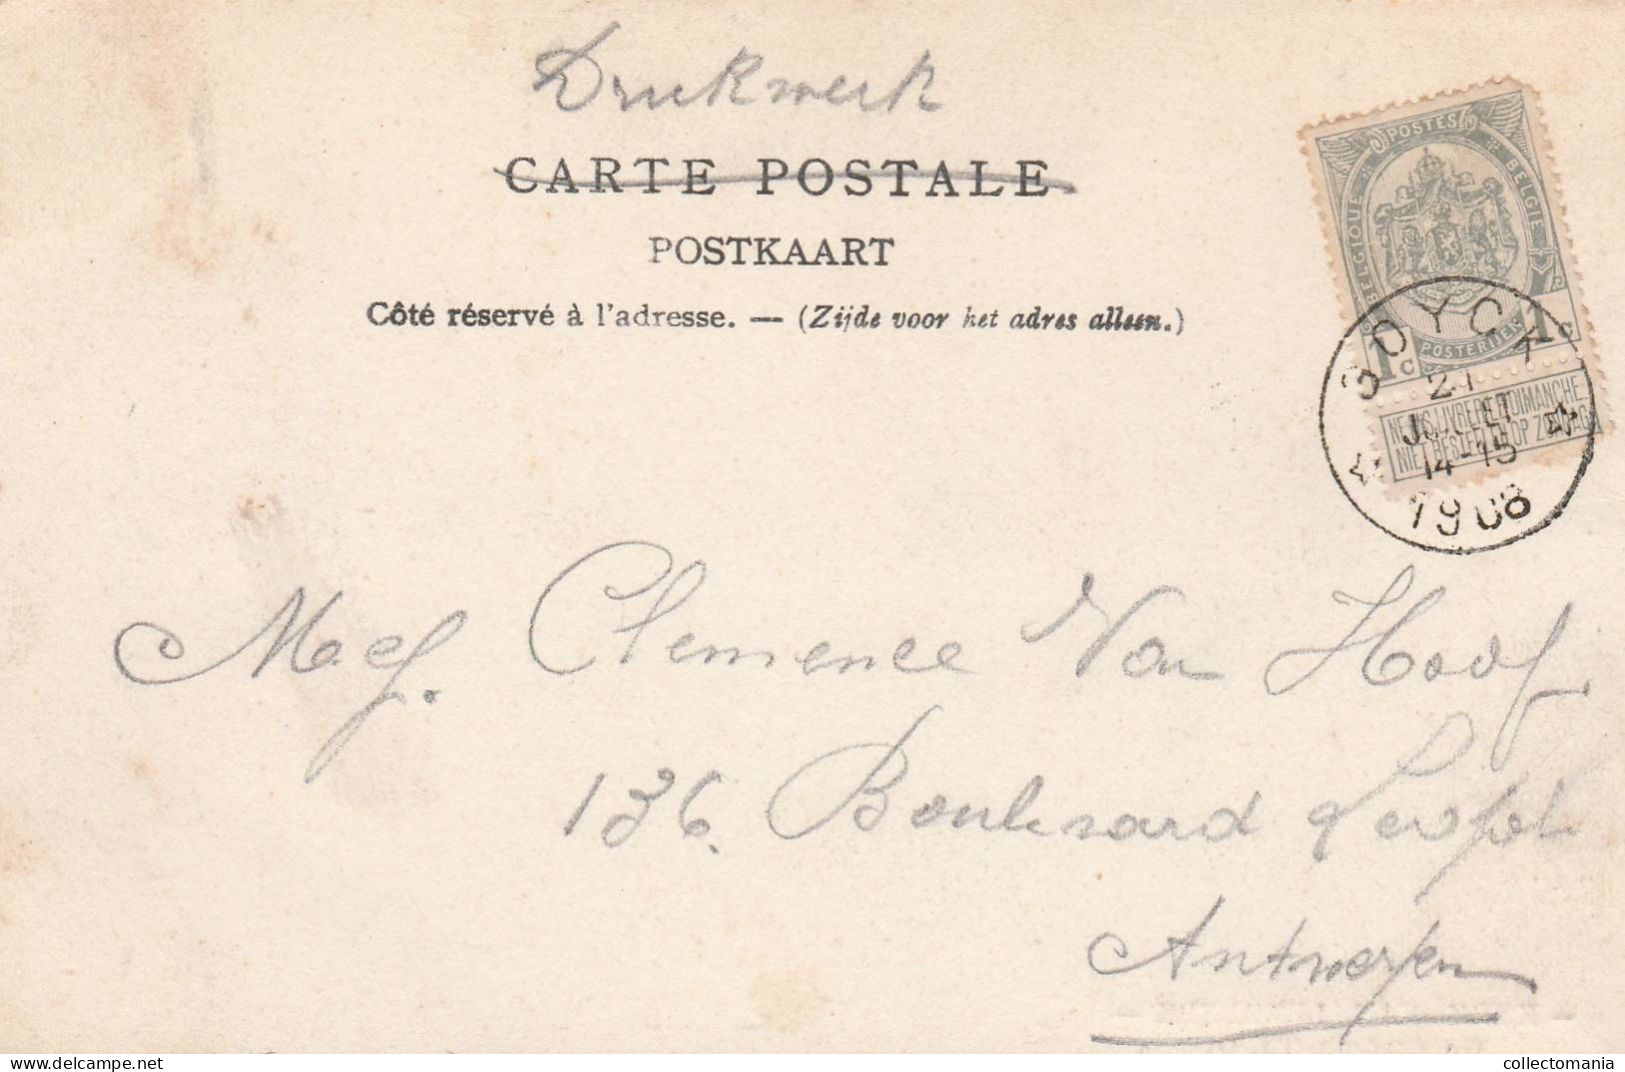 Drukwerk
CARTE POSTALE
POSTKAART
Côté réservé à l'adresse. — (Zijde voor het adres alleen.)
POSTES
BELGIQUE
BELGIË
POSTERIJEN
1c 1c
NE PAS LIVRER LE DIMANCHE
NIET BESTELLEN OP ZONDAG
BOYCK
21
JUILLET
14-15
1908
Mej. Clemence Van Hoof
136. Boulevard Leopold
Antwerpen
collectomania